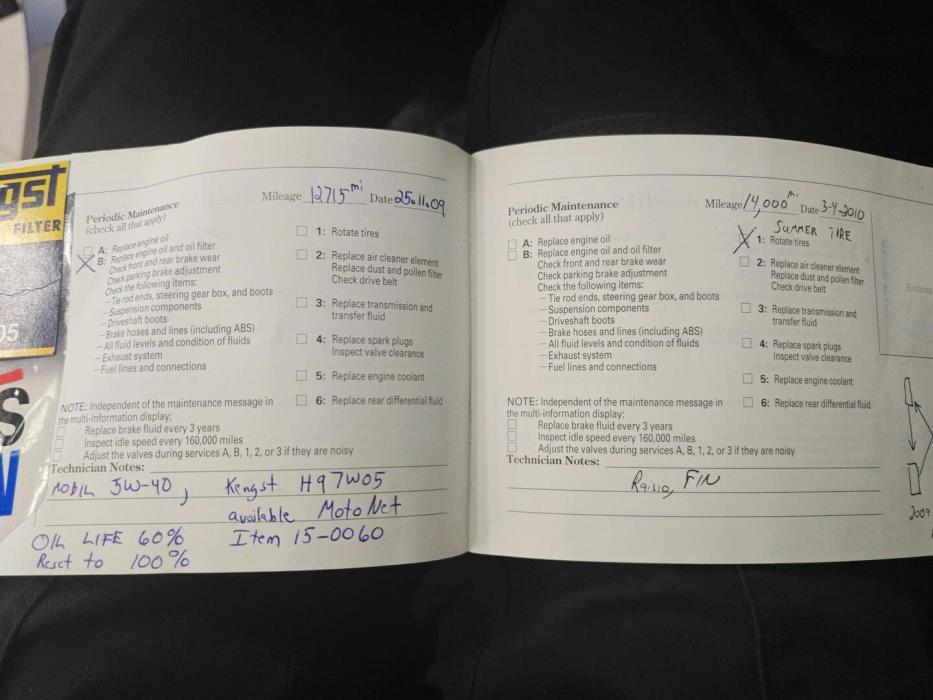 gst
FILTER
05
S
Periodic Maintenance
(check all that apply)
Mileage 12715 mi Date 25.11.09
A: Replace engine oil
B: Replace engine oil and oil filter
Check front and rear brake wear
Check parking brake adjustment
Check the following items:
– Tie rod ends, steering gear box, and boots
– Suspension components
– Driveshaft boots
– Brake hoses and lines (including ABS)
– All fluid levels and condition of fluids
– Exhaust system
– Fuel lines and connections
1: Rotate tires
2: Replace air cleaner element
Replace dust and pollen filter
Check drive belt
3: Replace transmission and
transfer fluid
4: Replace spark plugs
Inspect valve clearance
5: Replace engine coolant
6: Replace rear differential fluid
NOTE: Independent of the maintenance message in
the multi-information display;
Replace brake fluid every 3 years
Inspect idle speed every 160,000 miles
Adjust the valves during services A, B, 1, 2, or 3 if they are noisy
Technician Notes:
MOBIL 5W-40, Kengst H97W05
available MotoNet
OIL LIFE 60% Item 15-0060
Reset to 100%
Periodic Maintenance
(check all that apply)
Mileage 14,000 mi. Date 3-4-2010
A: Replace engine oil
B: Replace engine oil and oil filter
Check front and rear brake wear
Check parking brake adjustment
Check the following items:
– Tie rod ends, steering gear box, and boots
– Suspension components
– Driveshaft boots
– Brake hoses and lines (including ABS)
– All fluid levels and condition of fluids
– Exhaust system
– Fuel lines and connections
SUMMER TIRE
1: Rotate tires
2: Replace air cleaner element
Replace dust and pollen filter
Check drive belt
3: Replace transmission and
transfer fluid
4: Replace spark plugs
Inspect valve clearance
5: Replace engine coolant
6: Replace rear differential fluid
NOTE: Independent of the maintenance message in
the multi-information display;
Replace brake fluid every 3 years
Inspect idle speed every 160,000 miles
Adjust the valves during services A, B, 1, 2, or 3 if they are noisy
Technician Notes:
Raisio, FIN
2009